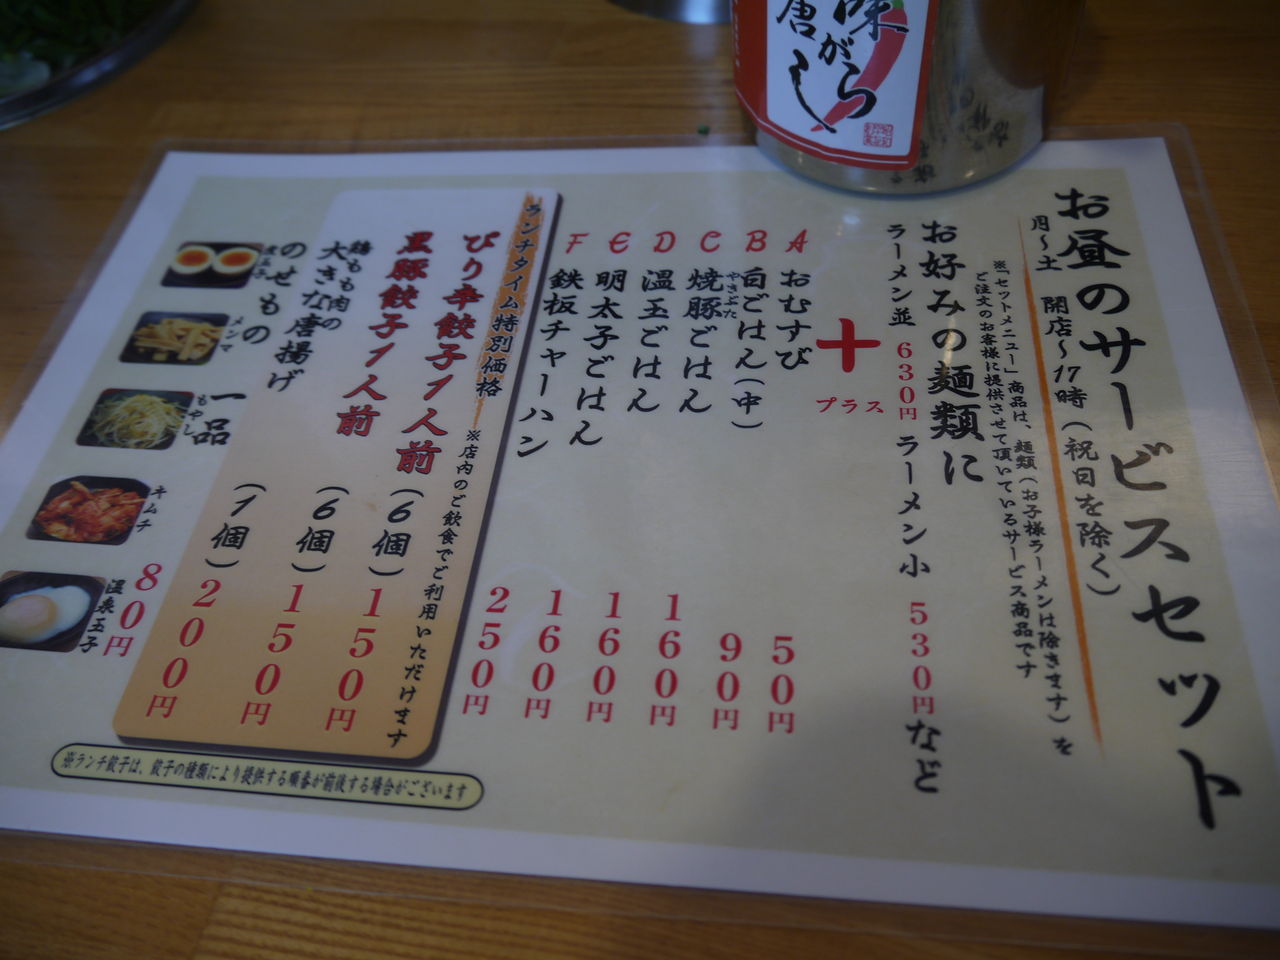 味がらし
唐
お昼のサービスセット
月〜土 開店〜17時(祝日を除く)
※「セットメニュー」商品は、麺類(お子様ラーメンは除きます)を
ご注文のお客様に提供させて頂いているサービス商品です
お好みの麺類に
ラーメン並 630円 ラーメン小 530円など
+
プラス
A おむすび 50円
B 白ごはん(中) 90円
C 焼豚ごはん 160円
やきぶた
D 温玉ごはん 160円
E 明太子ごはん 160円
F 鉄板チャーハン 250円
ランチタイム特別価格 ※店内のご飲食でご利用いただけます
ぴり辛餃子1人前(6個)150円
黒豚餃子1人前(6個)150円
鶏もも肉の
大きな唐揚げ(1個)200円
のせもの 一品 80円
煮玉子
メンマ
もやし
キムチ
温泉玉子
※ランチ餃子は、餃子の種類により提供する順番が前後する場合がございます